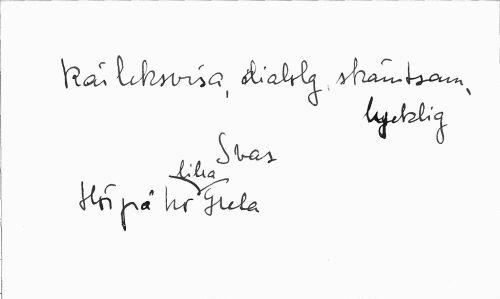 Kärleksvisa, dialog, skämtsam,
lycklig
Svar
lilla
Hör på hr Greta